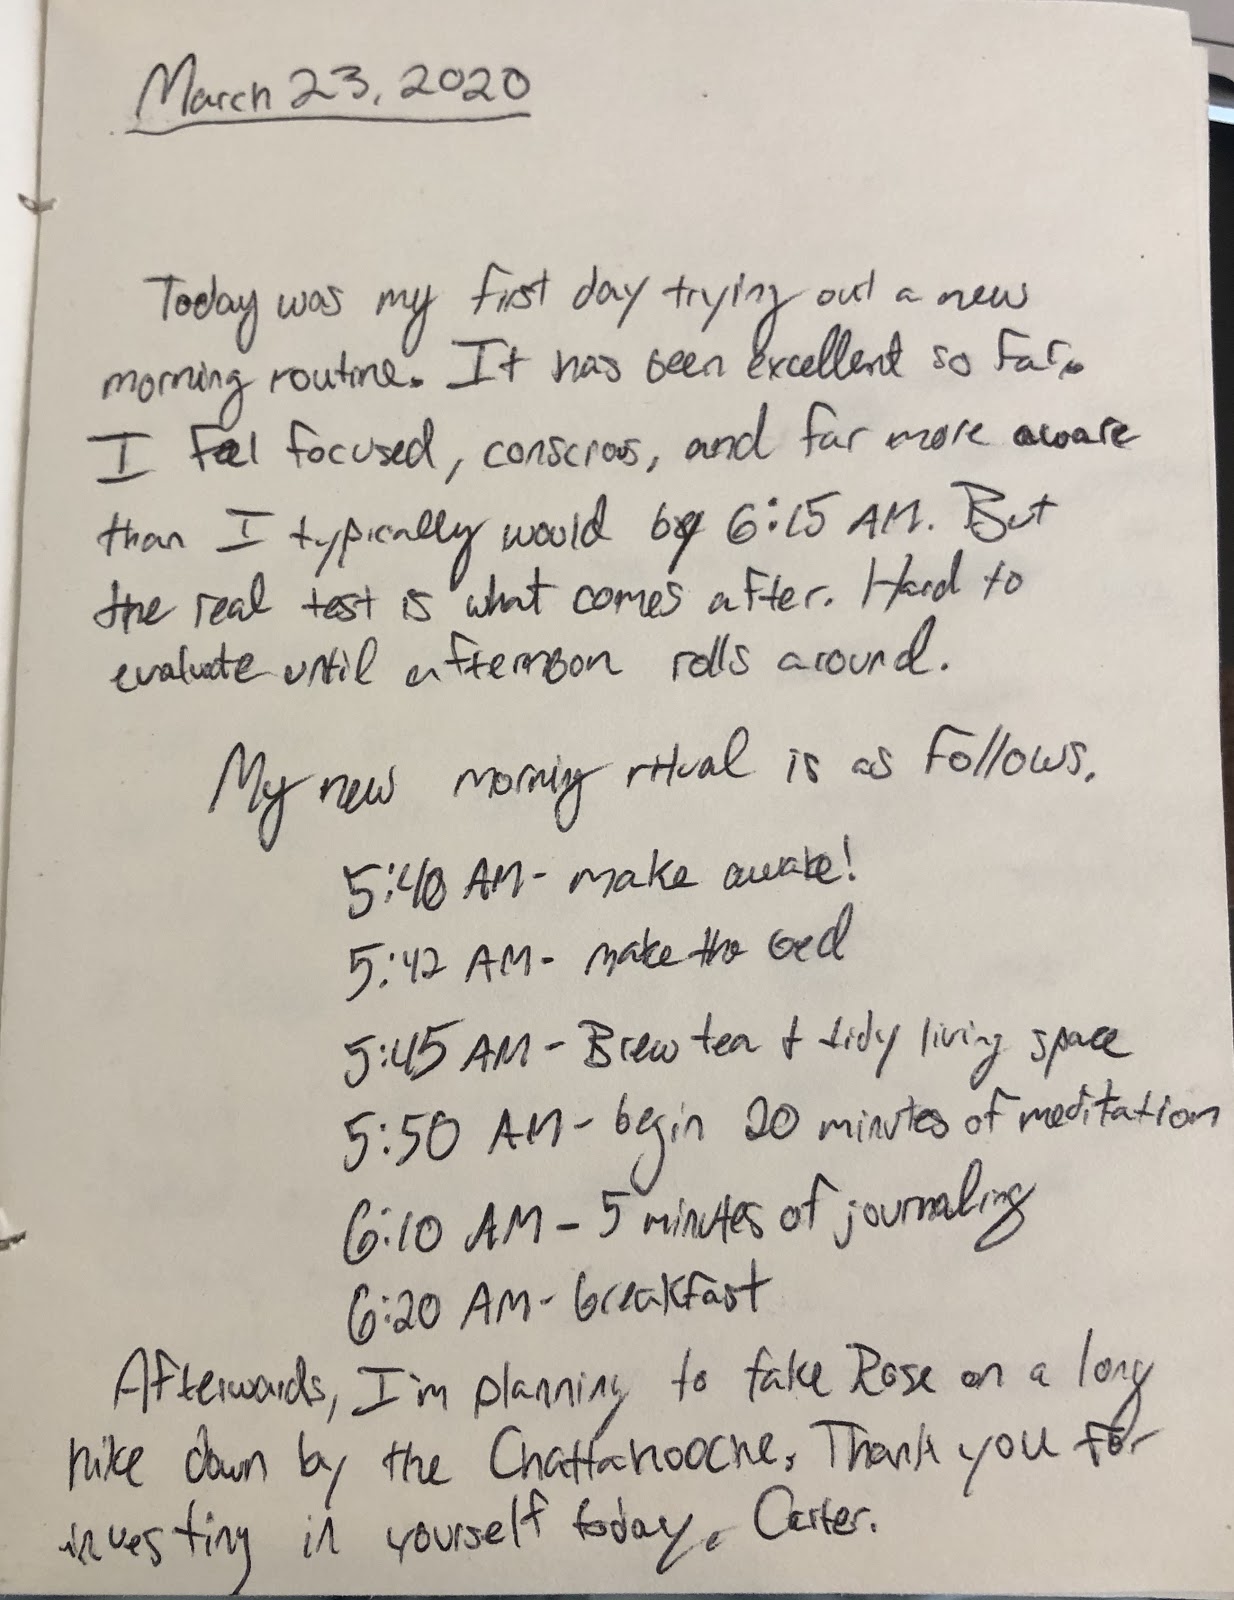 March 23, 2020
Today was my first day trying out a new
morning routine. It has been excellent so far.
I feel focused, conscious, and far more aware
than I typically would by 6:15 AM. But
the real test is what comes after. Hard to
evaluate until afternoon rolls around.
My new morning ritual is as follows.
5:40 AM- make awake!
5:42 AM- make the bed
5:45 AM- Brew tea + tidy living space
5:50 AM- begin 20 minutes of meditation
6:10 AM- 5 minutes of journaling
6:20 AM- breakfast
Afterwards, I'm planning to take Rose on a long
hike down by the Chattahoochee. Thank you for
investing in yourself today, Carter.